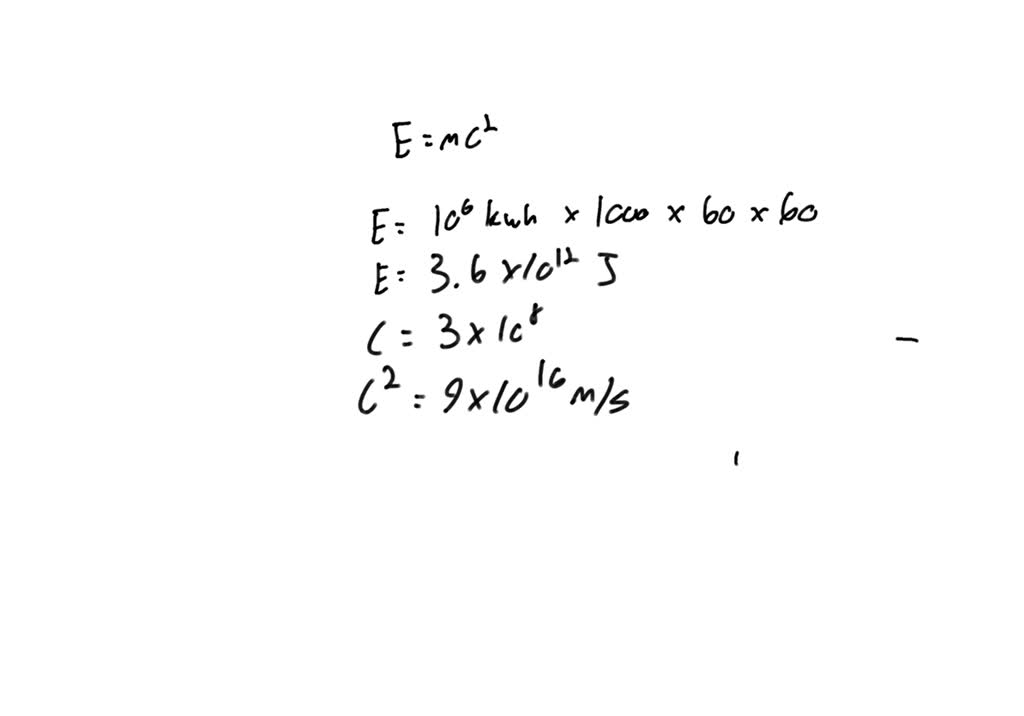 E = mc²
E = 10⁶ kwh × 1000 × 60 × 60
E = 3.6 × 10¹² J
C = 3 × 10⁸
C² = 9 × 10¹⁶ m/s